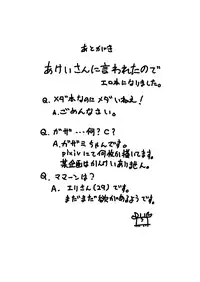 あとがき
あけいさんに言われたので
エロ本になりました。
Q. メダ本なのにメダいねえ!
A. ごめんなさい。
Q. ガザ…何?C?
A. ガザミちゃんです。
pixivにて何枚か描いてます。
某企画はかんけいあり絶ん。
Q. ママーンは?
A. エリさん(29)です。
まだまだ欲があるようです。